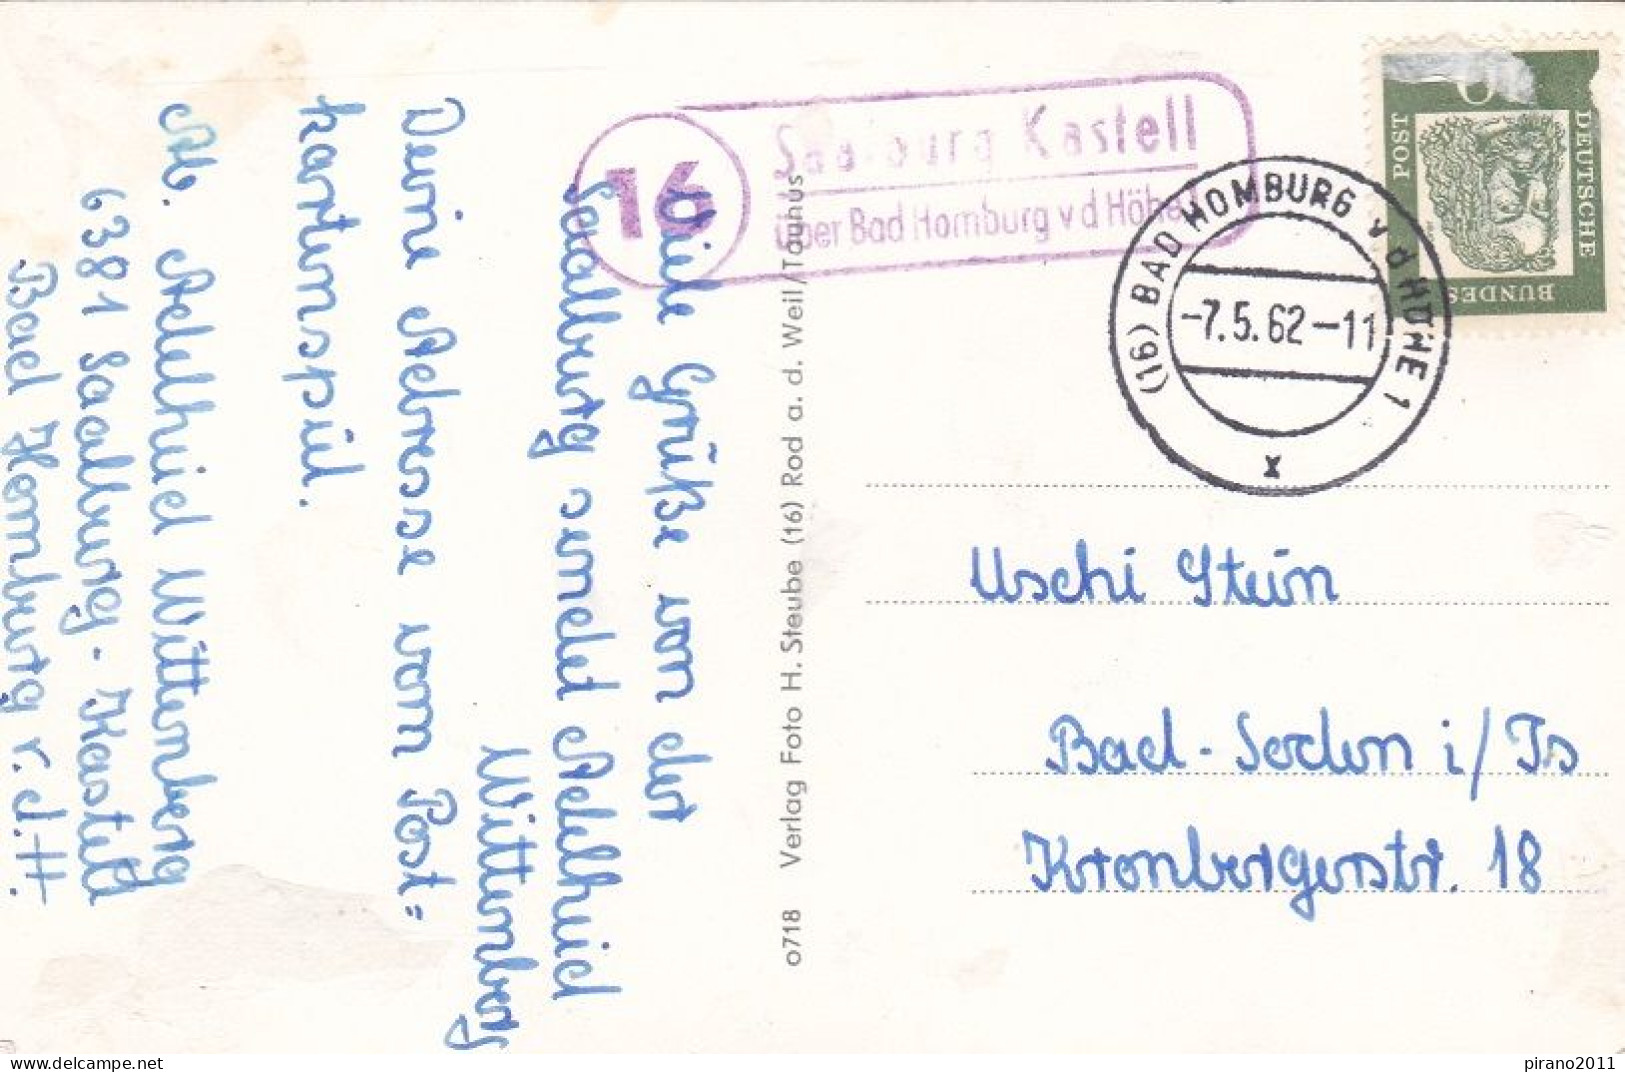 Viele Grüße von der
Saalburg sendet Adelheid
Wittenberg
Deine Adresse vom Post=
kartenspiel.
Ab. Adelheid Wittenberg
6381 Saalburg - Kastell
Bad Homburg v. d. H.
16
Saalburg Kastell
über Bad Homburg v d Höhe
(16) BAD HOMBURG v d HÖHE 1
-7.5.62-11
x
DEUTSCHE
BUNDES
POST
o718 Verlag Foto H. Steube (16) Rod a. d. Weil/Taunus
Uschi Stein
Bad-Soden i/Ts
Kronbergerstr. 18
www.delcampe.net
pirano2011